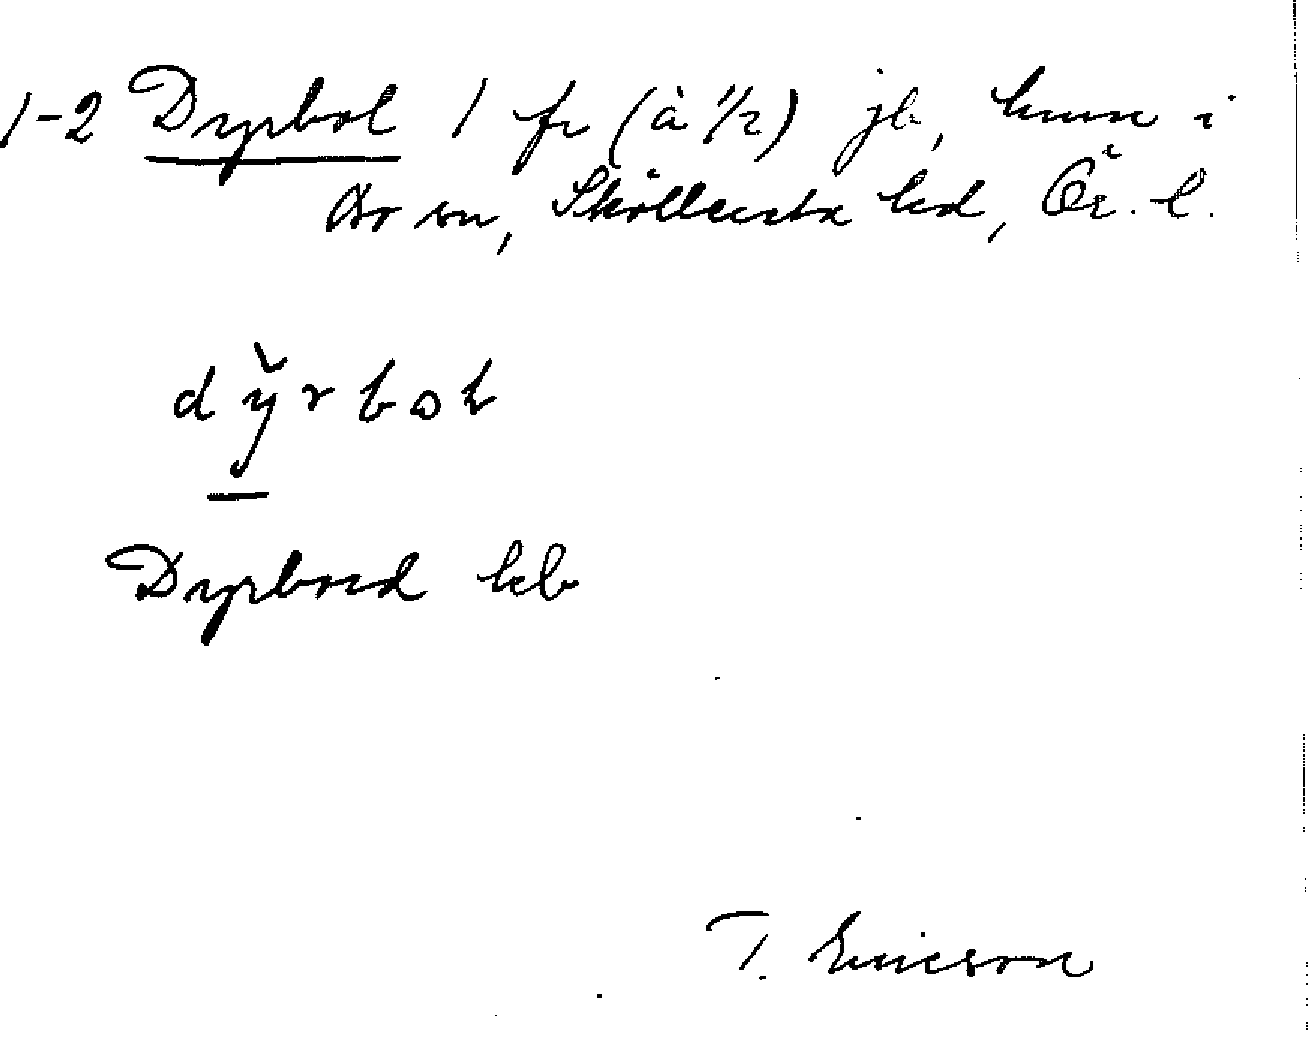 1-2 Dyrbol 1 fr (à 1/2) jb, hmn i
Asker sn, Sköllersta hd, Ör. l.
dy̌rbol
Dyrbord kb
T. Ericson